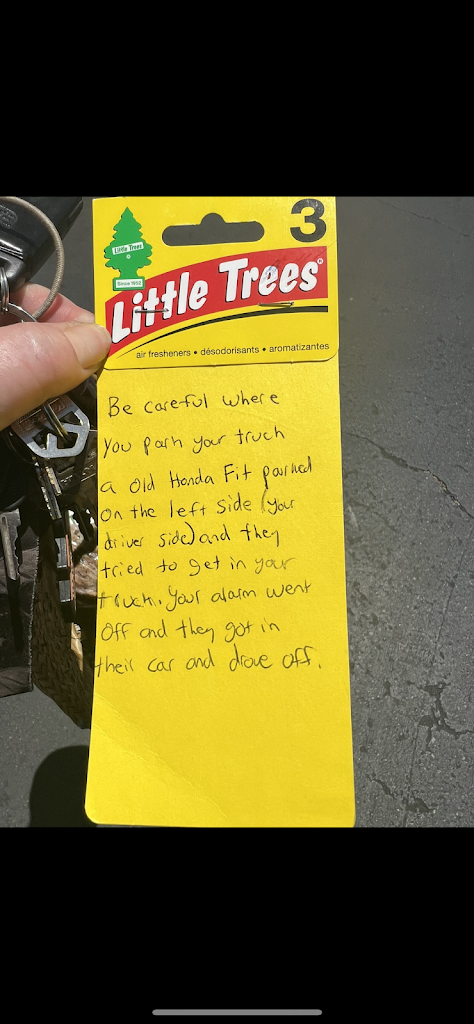 3
Little Trees
Since 1952
Little Trees®
air fresheners • désodorisants • aromatizantes
Be careful where
you park your truck
a old Honda Fit parked
on the left side (your
driver side) and they
tried to get in your
truck. Your alarm went
off and they got in
their car and drove off.